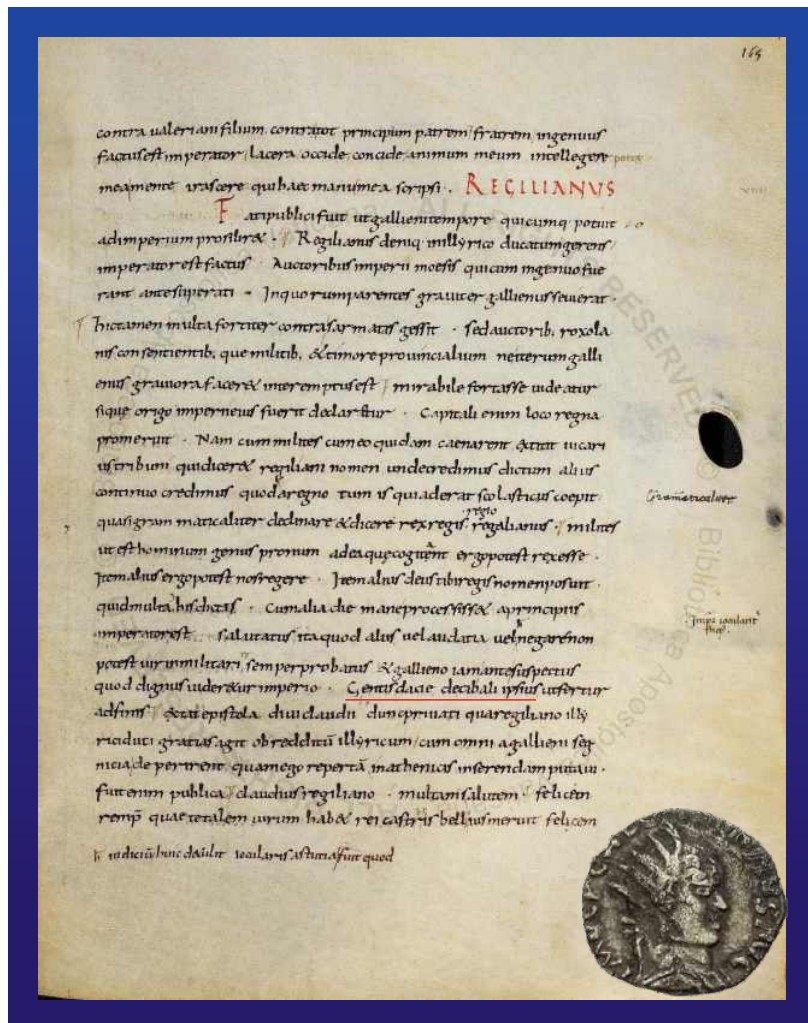 165
contra ualeriani filium contra tot principum patrem fratrem ingenuus
factus est imperator lacera occide concide animum meum intellegere
mea mente irascere qui haec manu mea scripsi . REGILIANUS
Fati publici fuit ut gallieni tempore quicumq; potuit
ad imperium prosiliret . Regilianus deniq; in illyrico ducatum gerens
imperator est factus . Auctoribus imperii moesis qui cum ingenuo fue
rant ante superati . In quorum parentes grauiter gallienus seuierat .
hic tamen multa fortiter contra sarmatas gessit . sed auctorib; roxola
nis consentientib; que militib; & timore prouincialium ne iterum galli
enus grauiora faceret interemptus est mirabile fortasse uideatur
sique origo imperii eius fuerit declaretur . Capitali enim loco regna
promeruit . Nam cum milites cum eo quidam caenarent extitit uicari
us tribuni qui diceret regiliani nomen unde credimus dictum alius
continuo credimus quod a regno tum is qui aderat scolasticus coepit
quasi grammaticaliter declinare & dicere rex regis regalianus . milites
regio
Grammaticaliter
ut est hominum genus pronum ad ea que cogitant ergo potest rex esse .
Item alius ergo potest nos regere . Item alius deus tibi regis nomen posuit .
quid multa his dictis . Cum alia die mane processisset a principiis
imperator est salutatus ita quod aliis uel audatia uel negare non
potest uir in militari semper probatus & gallieno iam ante suspectus
quod dignus uideretur imperio . Gentis dacie decibali ipsius ut fertur
adfinis extat epistola diui claudii dunc priuati qua regiliano illy
rici duci gratias agit ob redditū illyricum cum omni a gallieni seg
nicia de perirent quam ego repertā inathenicas inserendam putaui .
fuit enim publica claudius regiliano . multam salutem . felicem
remp quae te talem uirum habet rei castris bellicis meruit felicem
iudiciū hinc detulit iocularis astutia fuit quod